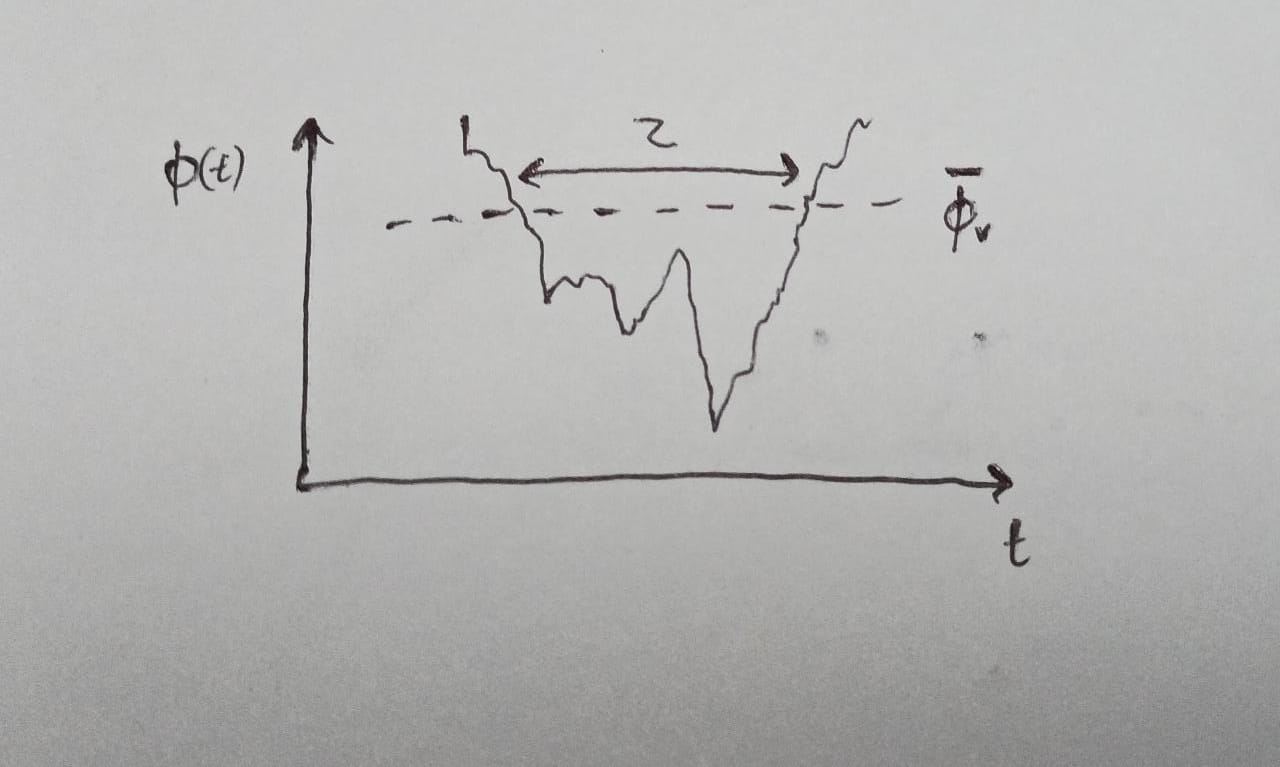 ϕ(t)
τ
ϕ̄ᵥ
t